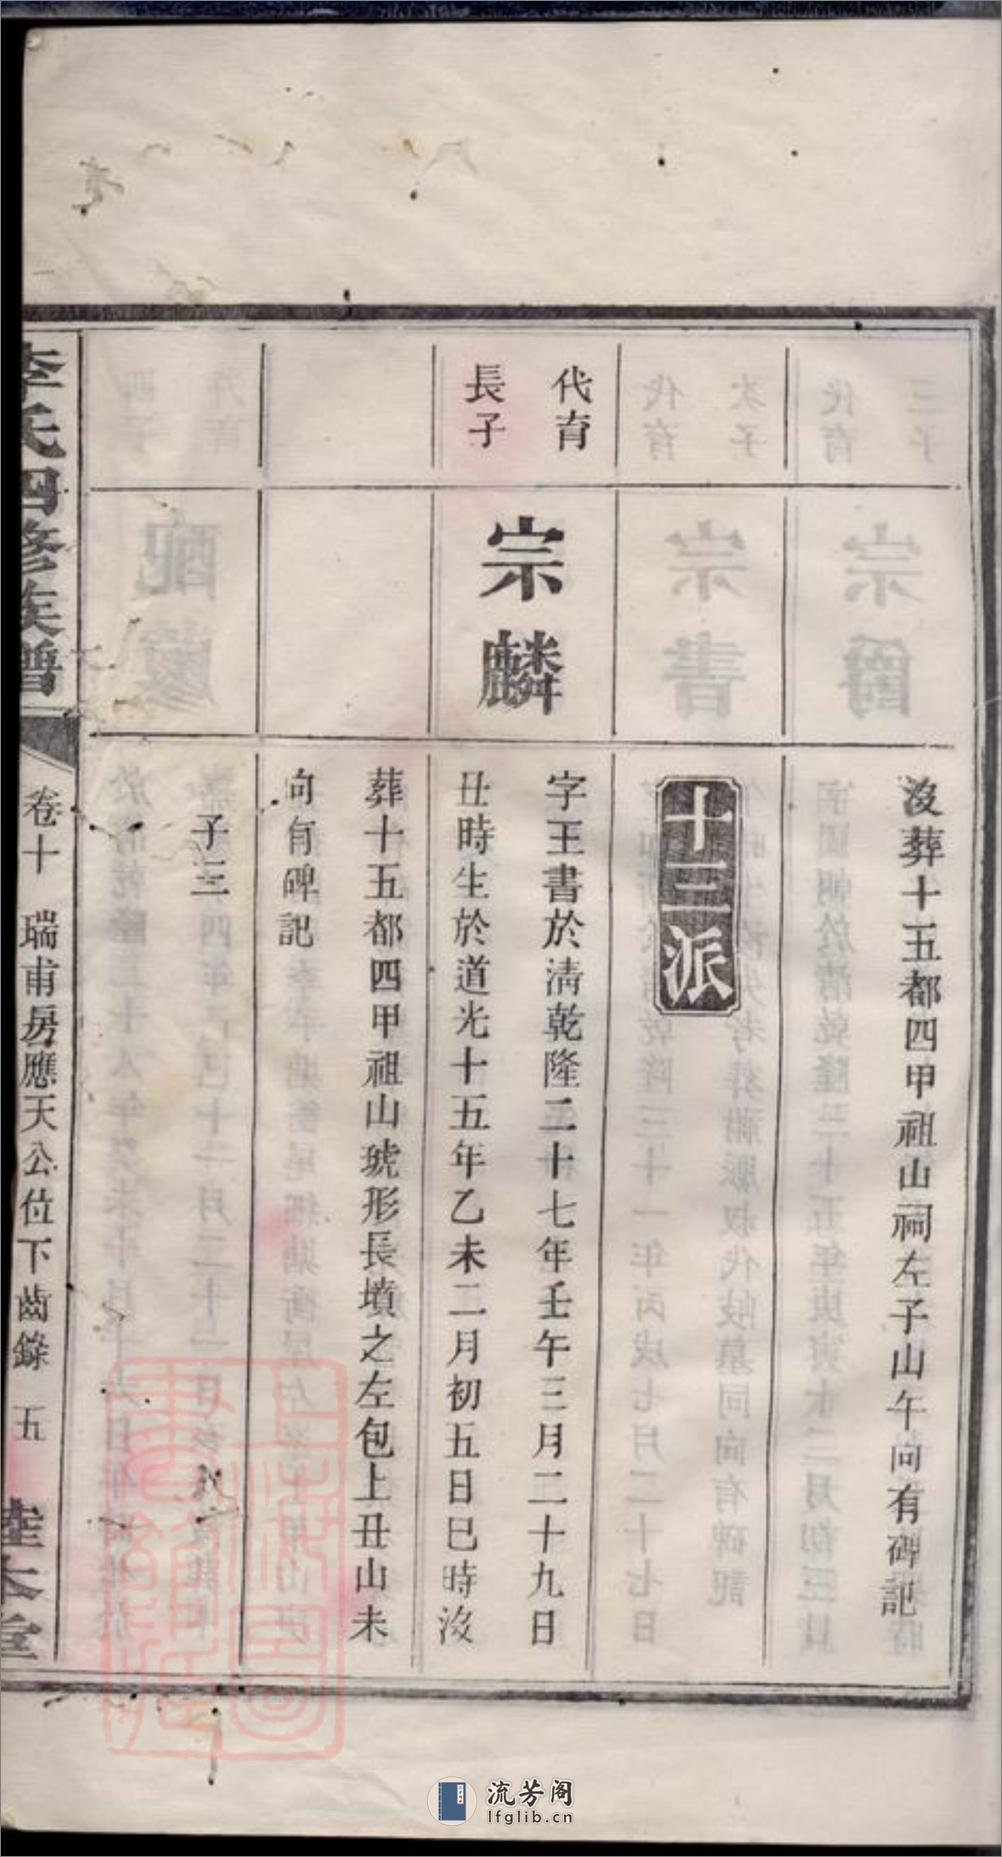 沒葬十五都四甲祖山祠左子山午向有碑記
十三派
代育
長子
宗麟
字王書於清乾隆二十七年壬午三月二十九日
丑時生於道光十五年乙未二月初五日巳時沒
葬十五都四甲祖山琥形長墳之左包上丑山未
向有碑記
子三
李氏四修族譜
卷十 瑞甫房應天公位下齒錄 五
本堂
流芳阁
lfglib.cn